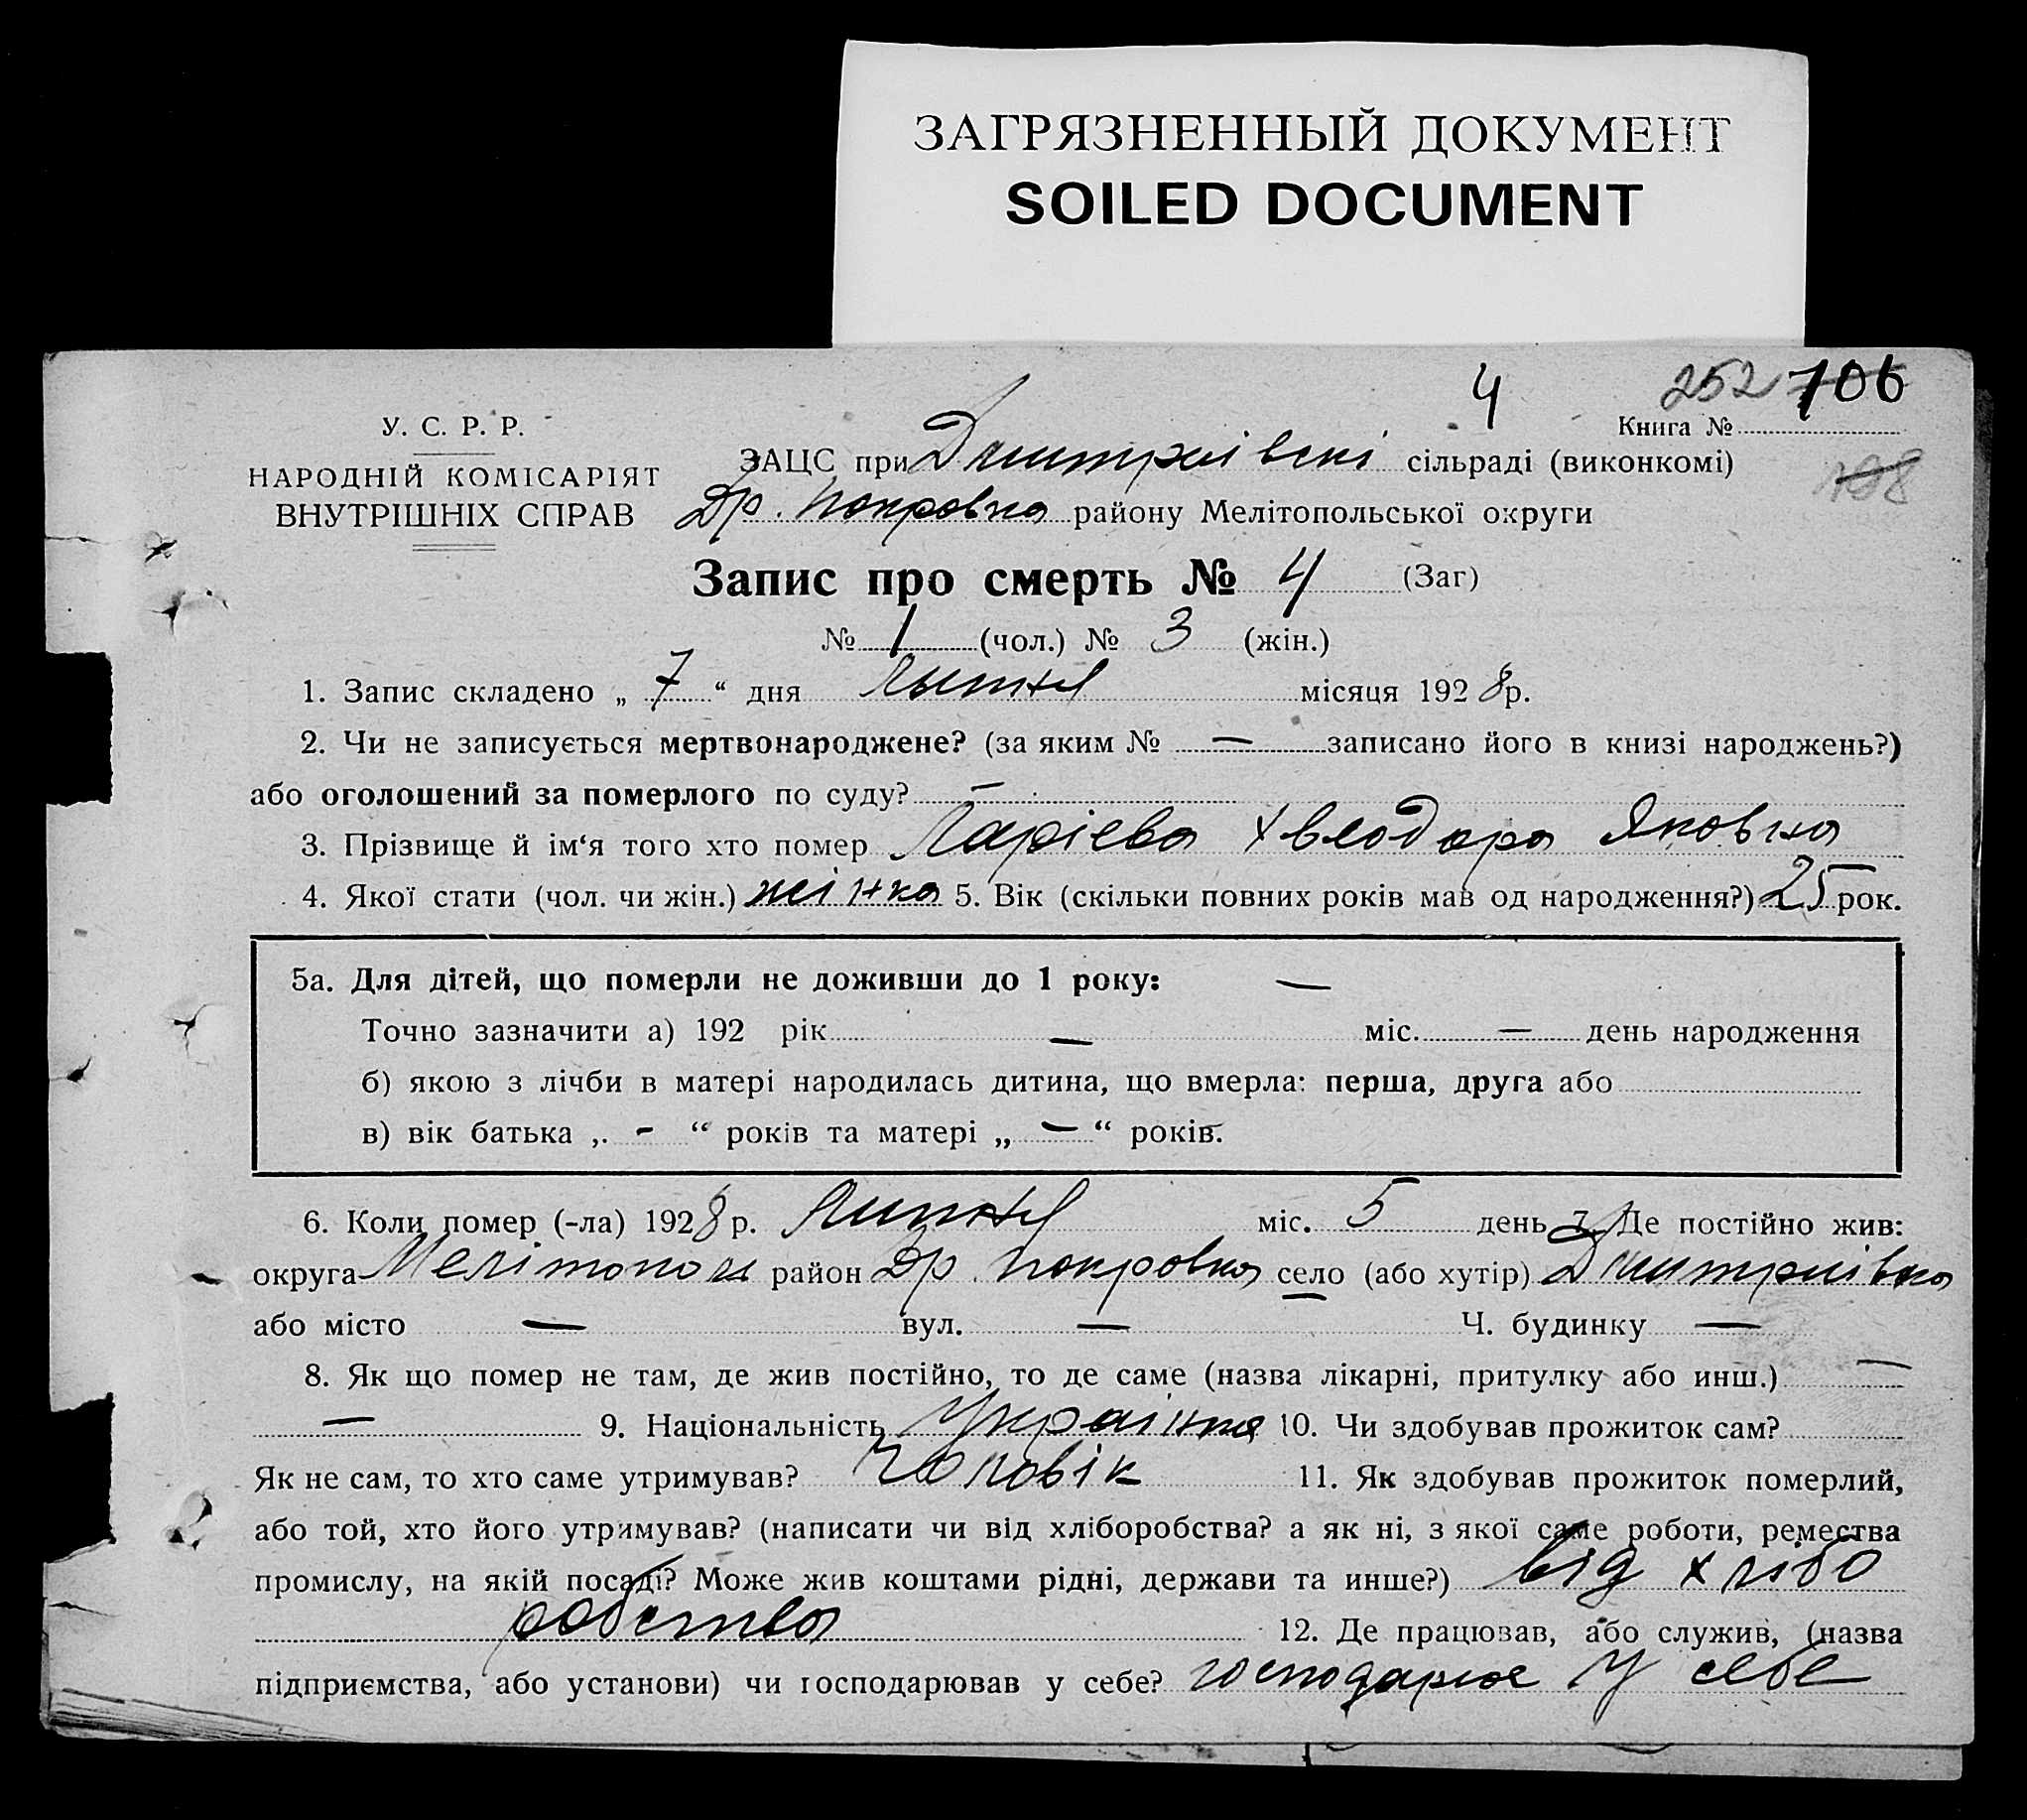 ЗАГРЯЗНЕННЫЙ ДОКУМЕНТ
SOILED DOCUMENT
4 252 106
У. С. Р. Р.
Книга №
НАРОДНІЙ КОМІСАРІЯТ
ВНУТРІШНІХ СПРАВ
ЗАЦС при Дмитрієвскі сільраді (виконкомі)
188
Др. Покровка району Мелітопольської округи
Запис про смерть № 4 (Заг)
№ 1 (чол.) № 3 (жін.)
1. Запис складено „ 7 “ дня місяця 1928р.
2. Чи не записується мертвонароджене? (за яким № — записано його в книзі народжень?)
або оголошений за померлого по суду? —
3. Прізвище й ім‘я того хто помер Хвеодора Яковна
4. Якої стати (чол. чи жін.) жінка 5. Вік (скільки повних років мав од народження?) 25 рок.
5а. Для дітей, що померли не доживши до 1 року: —
Точно зазначити а) 192 рік — міс. — день народження
б) якою з лічби в матері народилась дитина, що вмерла: перша, друга або
в) вік батька ,. - “ років та матері „ — “ років.
6. Коли помер (-ла) 1928 р. міс. 5 день 7. Де постійно жив:
округа Мелітополь район Др. Покровка село (або хутір) Дмитрієвка
або місто — вул. — Ч. будинку —
8. Як що помер не там, де жив постійно, то де саме (назва лікарні, притулку або инш.) —
— 9. Національність Українка 10. Чи здобував прожиток сам?
Як не сам, то хто саме утримував? Чоловік 11. Як здобував прожиток померлий,
або той, хто його утримував? (написати чи від хліборобства? а як ні, з якої саме роботи, ремества
промислу, на якій посаді? Може жив коштами рідні, держави та инше?) від хлібо
робства 12. Де працював, або служив, (назва
підприємства, або установи) чи господарював у себе? господарює У себе